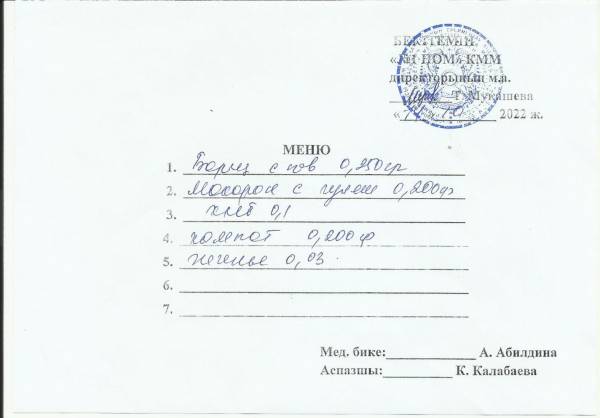 БЕКІТЕМІН
КММ
директорының м.а.
Т. Мукашева
« 2022 ж.
МЕНЮ
1. Борщ с гов 0,250гр
2. Макарон с гуляш 0,200гр
3. хлеб 0,1
4. компот 0,200гр
5. печенье 0,03
6.
7.
Мед. бике: А. Абилдина
Аспазшы: К. Калабаева